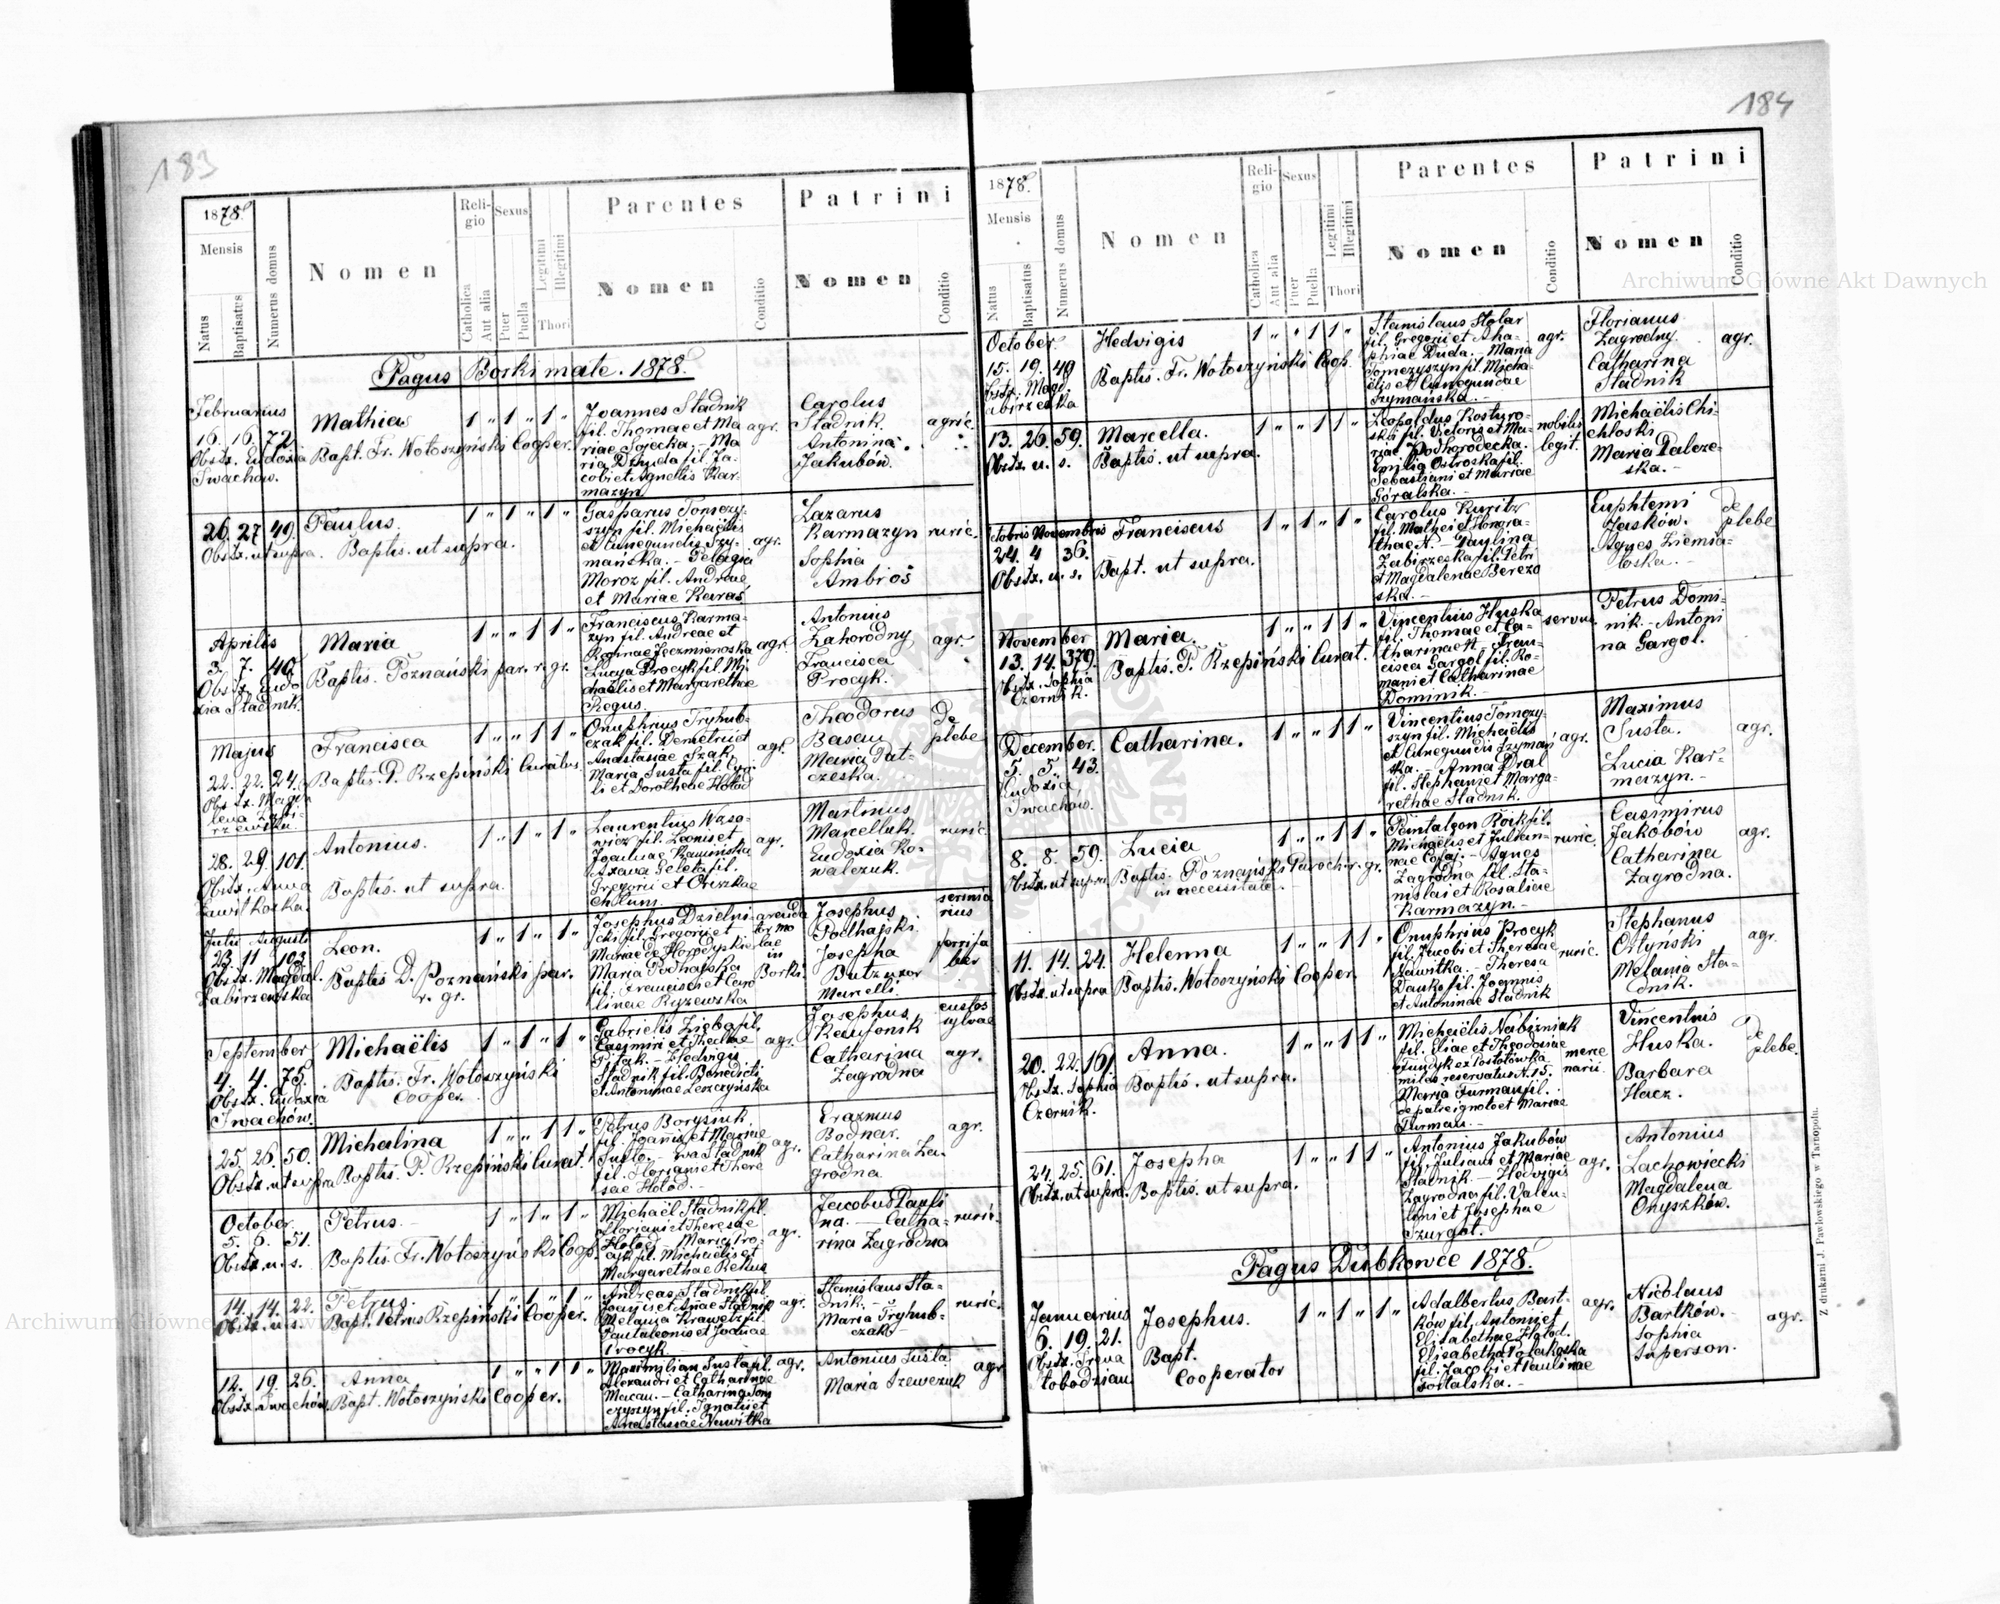 183
1878.
Mensis
Natus
Baptisatus
Numerus domus
Nomen
Religio
Catholica
Aut alia
Sexus
Puer
Puella
Legitimi
Illegitimi
Thori
Parentes
Nomen
Conditio
Patrini
Nomen
Conditio
Pagus Borki małe. 1878.
Februarius
16. 16. 72.
Obstz. Eudoxia
Iwachów.
Mathias
Bapt. Fr. Wołoszyński Cooper.
1 " 1 " 1 "
Joannes Stadnik
fil. Thomae et Ma
riae Sojecka. – Ma
ria Dżuda fil. Ja
cobi et Agnetis Kar
mazyn
agr.
Carolus
Stadnik.
Antonina
Jakubów.
agric.
26. 27 49.
Obstz. ut supra.
Paulus.
Baptis. ut supra.
1 " 1 " 1 "
Gasparus Tomczy-
szyn fil. Michaëlis
et Cunegundis Szy-
mańska. – Pelagia
Moroz fil. Andreae
et Mariae Karaś
agr.
Lazarus
Karmazyn
Sophia
Ambroś
ruric.
Aprilis
3. 7. 46.
Obstz. Eudo
xia Stadnik.
Maria
Baptis. Poznański par. r. gr.
1 " " 1 1 "
Franciscus Karma-
zyn fil. Andreae et
Reginae Jeczmienoska
Lucya Procyk fil. Mi
chaëlis et Margarethae
Regus
agr.
Antonius
Zahorodny
Francisca
Procyk.
agr.
Majus
22. 22. 24.
Obstz. Magda
lena Zabi-
rzewska.
Francisca
Baptis. P. Rzepiński Curatus.
1 " " 1 1 "
Onuphrius Tryhub-
czak fil. Demetrii et
Anastasiae Szak
Maria Susta fil. Cyri
li et Dorotheae Hołod
agr.
Theodorus
Basau
Maria Pat-
czeska.
De
plebe
28. 29. 101.
Obstz. Anna
Antonius.
Baptis. ut supra.
1 " 1 " 1 "
Laurentius Wąso-
wicz fil. Leonis et
Joannae Kamińska
Gregorii et
agr.
Martinus
Marcelluk.
Eudoxia Ko-
walczuk.
ruric.
Julii Augusti
23. 11. 103.
Obstz. Magdal.
Zabirzewska
Leon.
Baptis D. Poznański par.
r. gr.
1 " 1 " 1 "
Josephus Dzielni-
cki fil. Gregorii et
Mariae de Horodyskie
Maria Podhajska
fil. Francisci et Caro
linae Ryzewska
arenda
tor mo
lae
in
Borki
Josephus
Podhajski.
Josepha
Butz uxor
Marcelli.
September
4. 4. 75.
Obstz. Eudoxia
Iwachów.
Michaëlis
Baptis. Fr. Wołoszyński
Cooper.
1 " 1 " 1 "
Gabrielis Zięba fil.
Casimiri et Theclae
Pitak. – Hedvigis
Stadnik fil. Benedicti
et Antoninae Leszczyńska
agr.
Josephus
Catharina
Zagrodna
custos
sylvae
agr.
25. 26. 50.
Obstz. ut supra
Michalina
Baptis. P. Rzepiński Curat.
1 " " 1 1 "
Petrus Borysiuk
fil. Joannis et Mariae
Susto. – Eva Stadnik
fil. Floriani et There
sae Hołod. –
agr.
Erazmus
Bodnar.
Catharina Za-
grodna
agr.
October
5. 6. 51.
Obstz. u. s.
Petrus. –
Baptis. Fr. Wołoszyński Coop.
1 " 1 " 1 "
Michaël Stadnik fil.
Floriani et Theresae
Hołod – Maria Pro-
cyk fil. Michaëlis et
Margarethae Rekus
agr.
Jacobus Pauli
na. – Catha-
rina Zagrodna
ruric.
14. 14. 22.
Obstz. u. s.
Petrus.
Bapt. Petrus Rzepiński Cooper.
1 " 1 " 1 "
Andreas Stadnik fil.
Joannis et Anae Stadnik
Melania Krawetz fil.
Pantaleonis et Joannae
Procyk
agr.
Stanislaus Sta-
dnik. –
Maria Tryhub-
czak
ruric.
12. 19. 26.
Obstz. Iwachów.
Anna
Bapt. Wołoszyński Cooper.
1 " " 1 1 "
Maximilian Susta fil.
Alexandri et Catharinae
Macau. – Catharina Tom
czyszyn fil. Ignatii et
Anastasiae Nawitka
agr.
Antonius Susta
Maria Szewczuk
agr.
184
1878.
Mensis
Natus
Baptisatus
Numerus domus
Nomen
Religio
Catholica
Aut alia
Sexus
Puer
Puella
Legitimi
Illegitimi
Thori
Parentes
Nomen
Conditio
Patrini
Nomen
Conditio
October.
15. 19. 49
Obstz. Magd.
Zabirzeska
Hedvigis
Baptis. Fr. Wołoszyński Coop.
1 " " 1 1 "
Stanislaus Stolar
fil. Gregorii et Aha-
phiae Duda. – Maria
Tomczyszyn fil. Micha-
ëlis et Cunegundae
Szymańska. –
agr.
Florianus
Zagrodny.
Catharina
Stadnik
agr.
13. 26. 59.
Obstz. u. s.
Marcella.
Baptis. ut supra.
1 " " 1 1 "
Leopoldus Kosturo-
ski fil. Victoris et Ma-
riae Podhorodecka.
Emilia Ostroska fil.
Sebastiani et Mariae
Góralska. –
nobilis
legit.
Michaëlis Chi-
chłoski
Maria Palcze-
ska. –
Octobris Novembris
24. 4. 36.
Obstz. u. s.
Franciscus
Bapt. ut supra.
1 " 1 " 1 "
Carolus Kuritz
fil. Mathei et Honora-
thae N. – Paulina
Zabirzeska fil. Petri
et Magdalenae Berezo
ska. –
Euphtemi
Jasków.
Agnes Ziemia-
łoska. –
de
plebe
November
13. 14. 379.
Obstz. Sophia
Czernik.
Maria.
Baptis. P. Rzepiński Curat.
1 " " 1 1 "
Vincentius Huska
fil. Thomae et Ca-
tharinae N. – Fran-
cisca Gargol fil. Ro-
mani et Catharinae
Dominik. –
servus
Petrus Domi-
nik – Antoni
na Gargol.
December.
5. 5. 43.
Eudoxia
Iwachów.
Catharina.
1 " " 1 1 "
Vincentius Tomczy-
szyn fil. Michaëlis
et Cunegundis Szymań
ska. – Anna Dral
fil. Stephani et Marga-
rethae Stadnik.
agr.
Maximus
Susta.
Lucia Kar-
mazyn. –
agr.
8. 8. 59.
Obstz. ut supra.
Lucia
Baptis. Poznański Paroch. r. gr.
in necessitate.
1 " " 1 1 "
Pantaleon Roik fil.
Michaëlis et Julian-
nae Cofaj. – Agnes
Zagrodna fil. Sta-
nislai et Rosaliae
Karmazyn. –
ruric.
Casimirus
Jakobów
Catharina
Zagrodna.
agr.
11. 14. 24.
Obstz. ut supra
Helenna
Baptis. Wołoszyński Cooper.
1 " " 1 1 "
Onuphrius Procyk
fil. Jacobi et Theresae
Nawitka. – Theresa
Dauko fil. Joannis
et Antoninae Stadnik
ruric.
Stephanus
Oztynski
Melania Sta-
dnik.
agr.
20. 22. 161.
Obstz. Sophia
Czernik.
Anna.
Baptis. ut supra.
1 " " 1 1 "
Michaëlis Nabiżniak
fil. Eliae et Theodosiae
Fundyk ex Postołówka
miles reservatus N. 15.
Maria Furman fil.
de patre ignoto et Mariae
Furman. –
merce
narii
Vincentius
Huska.
Barbara
Hacz.
De
plebe.
24. 25. 61.
Obstz. ut supra.
Josepha
Baptis. ut supra.
1 " " 1 1 "
Antonius Jakubów
fil. Juliani et Mariae
Stadnik. – Hedvigis
Zagrodna fil. Valen-
tini et Josephae
Szurgot.
agr.
Antonius
Lachowiecki
Magdalena
Onyszków.
Pagus Dubkowce 1878.
Januarius
6. 19. 21.
Obstz. Irena
Łobodzian
Josephus.
Bapt.
Cooperator
1 " 1 " 1 "
Adalbertus Bart-
ków fil. Antonii et
Elisabethae Hołod.
Elisabetha Polakoska
fil. Jacobi et Paulinae
agr.
Nicolaus
Bartków.
Sophia
Superson.
agr.
Z drukarni J. Pawłowskiego w Tarnopolu.
Archiwum Główne Akt Dawnych